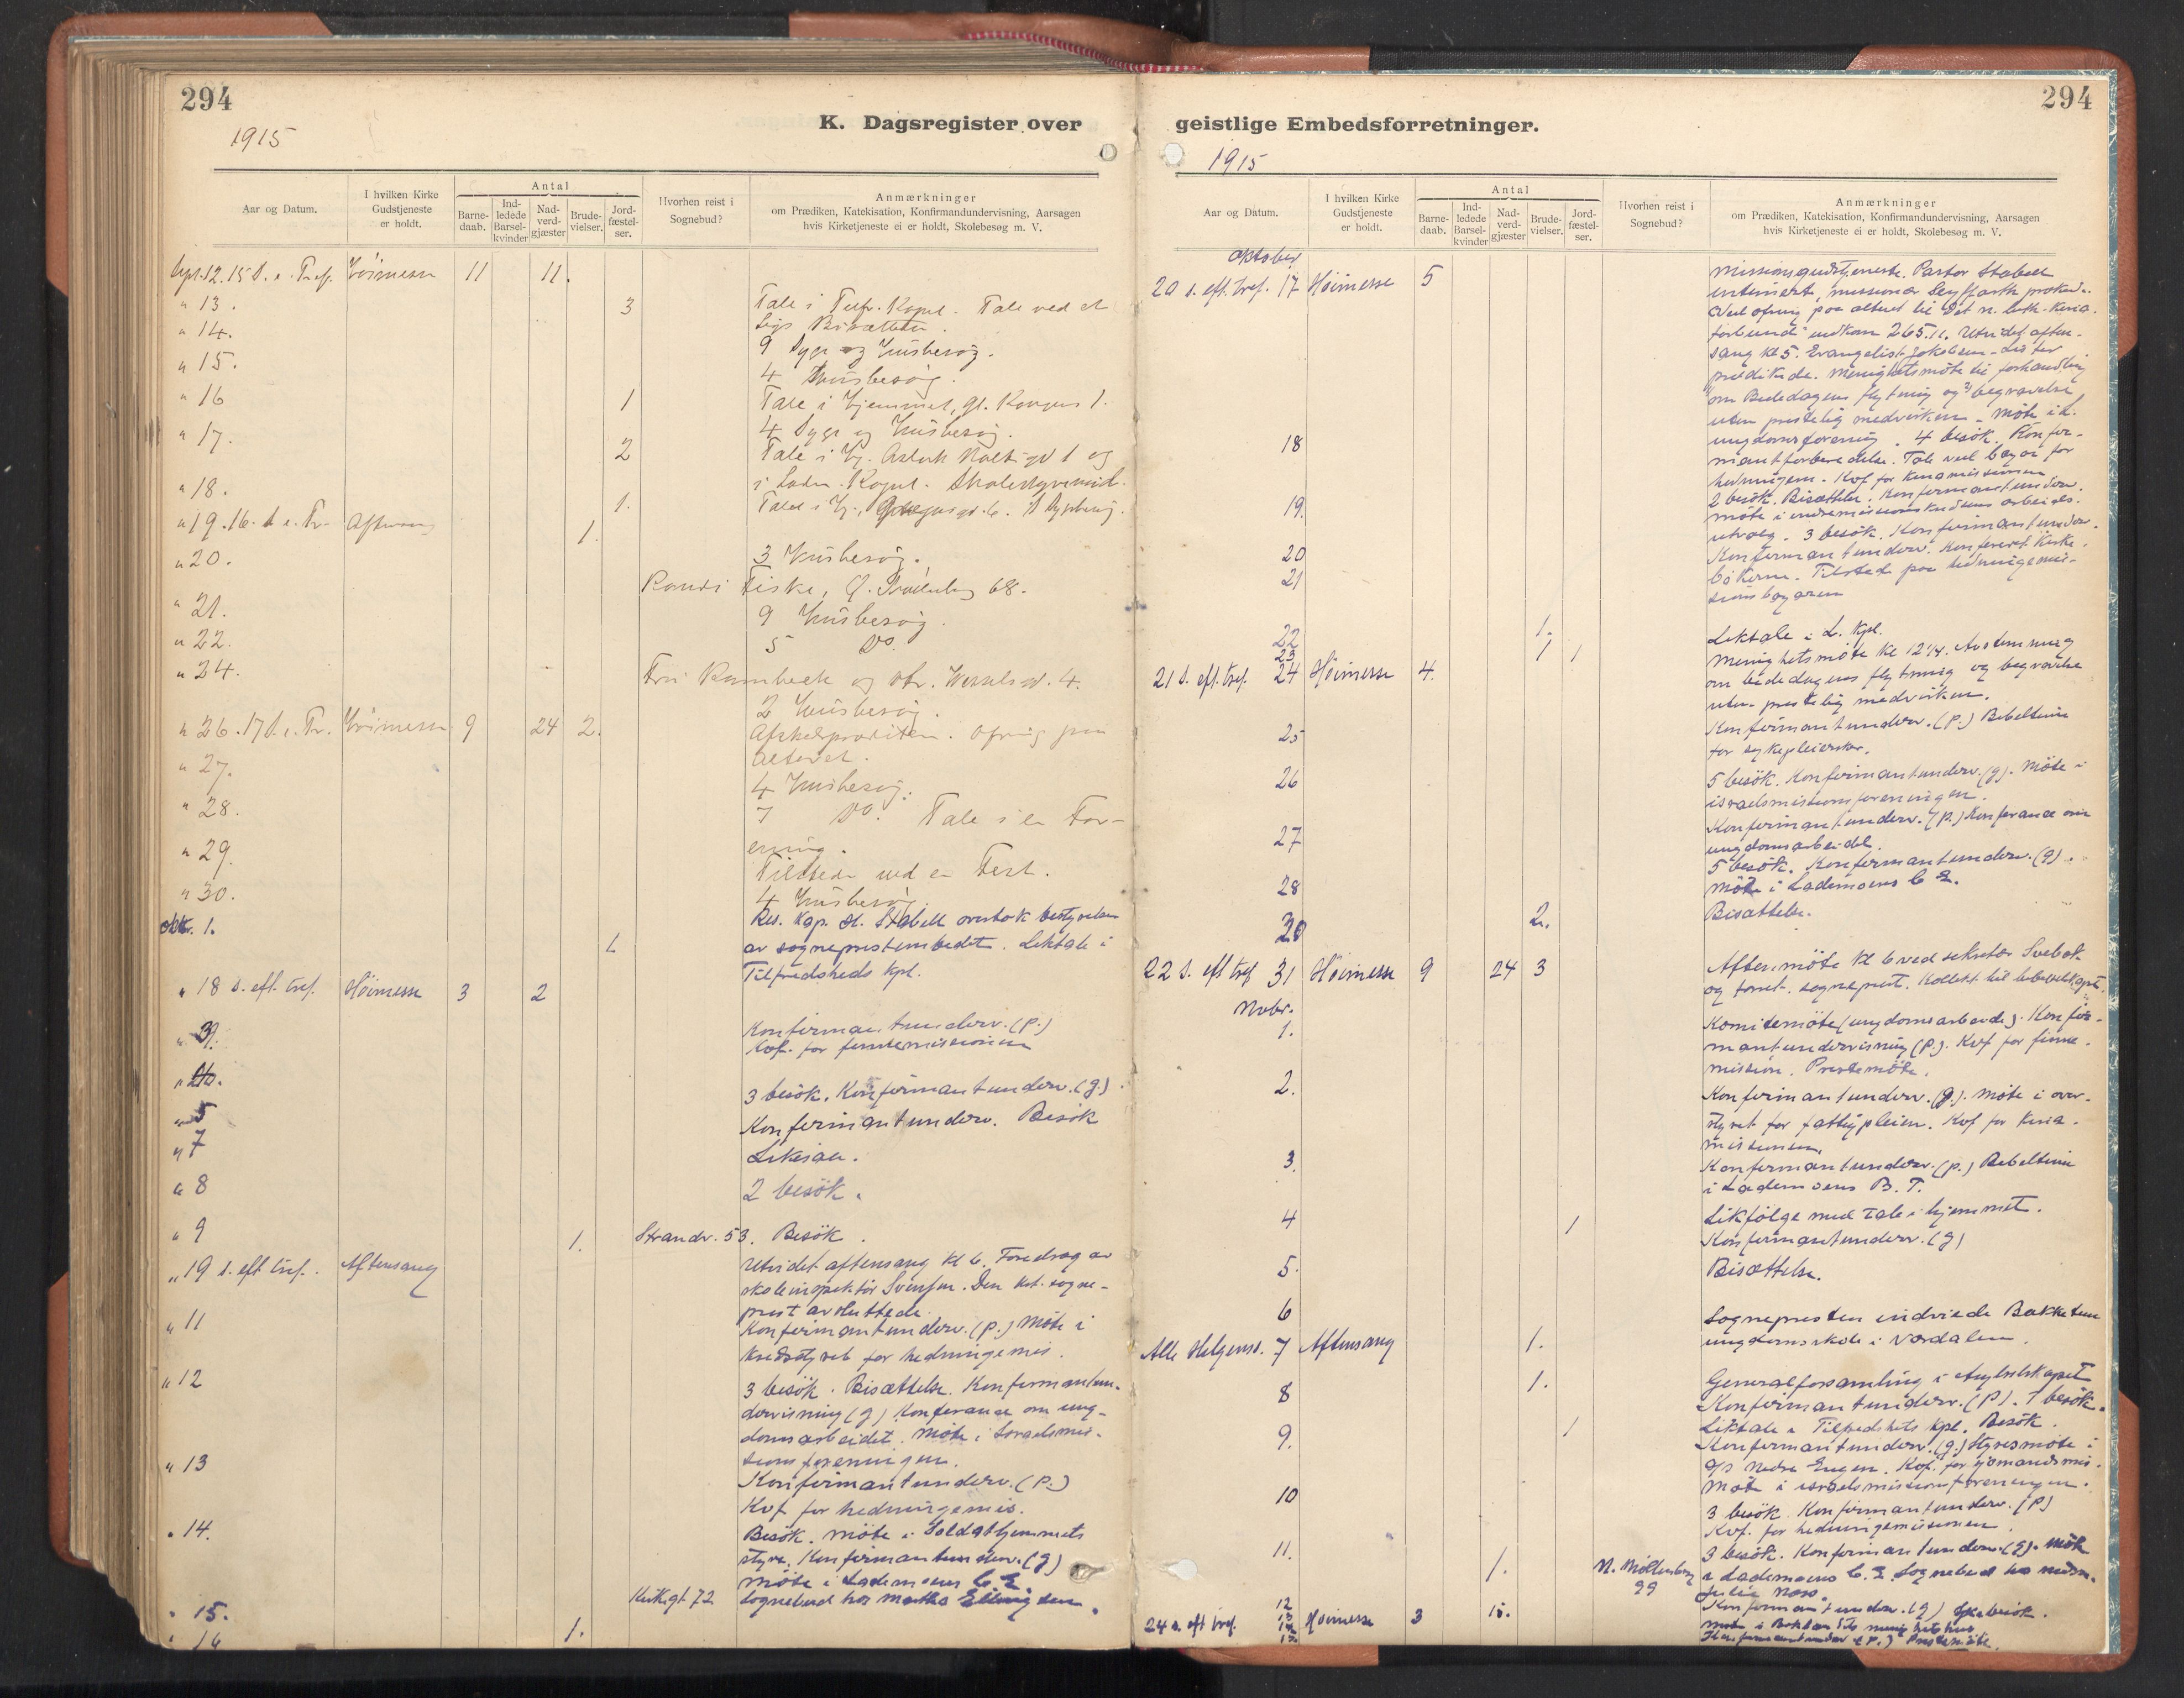 294
K. Dagsregister over
1915
Aar og Datum.
I hvilken Kirke
Gudstjeneste
er holdt.
Antal
Barne-
daab.
Ind-
ledede
Barsel-
kvinder
Nad-
verd-
gjæster
Brude-
vielser.
Jord-
fæstel-
ser.
Hvorhen reist i
Sognebud?
Anmærkninger
om Prædiken, Katekisation, Konfirmandundervisning, Aarsagen
hvis Kirketjeneste ei er holdt, Skolebesøg m. V.
Sept. 12. 15 S. e. Tref. Höimesse 11 11.
" 13. 3 Tale i Tilfr. Kapel. Tale ved et
Ligs Bisættelse.
" 14. 9 Syge og Husbesøg.
" 15. 4 Husbesøg.
" 16 1 Tale i Hjemmet, gl. Kongev 1.
" 17. 4 Syge og Husbesøg.
2 Tale i Hj. gd 1 og
" 18. i Kapel.
1. Tale i Hj.
" 19. 16. S. e. Tr. Aftensang 1.
" 20. 3 Husbesøg.
Fiske, 68.
" 21. 9 Husbesøg.
" 22. 5 Do.
" 24. Fru og Wesselsgd. 4.
2 Husbesøg.
" 26. 17 S. e. Tr. Höimesse 9 24 2. Afskedsprædiken. Ofring paa
alteret.
" 27. 4 Husbesøg.
" 28. 7 Do. Tale i en For-
ening.
" 29. Tilstede ved en Fest.
" 30. 4 Husbesøg
Okt. 1. Res. Kap. St. Stabell overtok bestyrelsen
1 av sogneprestembedet. Liktale i
Tilfredsheds Kpl.
" 18 s. eft. tref. Höimesse 3 2
" 3. Konfirmantunderv. (p.)
Kof. for finnemissionen
3 besök. Konfirmantunderv. (g.)
" 5 Konfirmantunderv. Besök
" 7 Liktale.
" 8 2 besök.
" 9 1. Strandv. 53. Besök.
" 19 s. eft tref. Aftensang Utvidet aftensang kl 6. Foredrag av
skoleinspektör Svensen. Den kst. sogne-
prest avsluttede.
" 11 Konfirmantunderv. (p.) Möte i
kredsstyret for hedningemis.
" 12 3 besök. Bisættelse. Konfirmantun-
dervisning (g) Konferanse om ung-
domsarbeidet. Möte i Israelsmis-
sionsforeningen.
" 13 Konfirmantunderv. (p.)
Kof for hedningemis.
" 14. Besök. Möte i Soldathjemmets
styre. Konfirmantunderv. (g)
Möte i Lademoens C. E.
Kirkegt 72 Sognebud hos Martha Ellingsen.
" 15.
" 16 1.
294
geistlige Embedsforretninger.
1915
Aar og Datum.
I hvilken Kirke
Gudstjeneste
er holdt.
Antal
Barne-
daab.
Ind-
ledede
Barsel-
kvinder
Nad-
verd-
gjæster
Brude-
vielser.
Jord-
fæstel-
ser.
Hvorhen reist i
Sognebud?
Anmærkninger
om Prædiken, Katekisation, Konfirmandundervisning, Aarsagen
hvis Kirketjeneste ei er holdt, Skolebesøg m. V.
Oktober
20 s. eft. tref. 17 Höimesse 5 Missionsgudstjeneste. Pastor Stabell
intimerte, missionær Seyffarth prækede.
Ved ofring paa alteret til Det n. luth. Kina-
forbund indkom 265.11. Utvidet aften-
sang kl 5. Evangelist Jakobsen-Lister
prædikede. Menighetsmöte til forhandling
om Bededagens flytning og begravelse
uten prestelig medvirken. Möte i L.
ungdomsforening.
18 4 besök. Konfir-
mantforberedelse. Tale ved basar for
hedningem. Kof for Kinamissionen
19. 2 besök. Bisættelse. Konfirmantunderv.
Möte i indremissionskredsens arbeids-
utvalg.
20 3 besök. Konfirmantunderv.
21 Konfirmantunderv. Konfereret Kirke-
bökerne. Tilstede paa hedningemis-
sionsbasaren
22 1. Liktale i L. Kpl.
23 1 1
21 s. eft. tref. 24 Höimesse 4. Menighetsmöte kl 12 1/4. Avstemning
om bededagens flytning og begravelse
uten prestelig medvirken.
25 Konfirmantunderv. (p.) Bibeltime
for sykepleiersker.
26 5 besök. Konfirmantunderv. (g). Möte i
israelsmissionsforeningen.
27 Konfirmantunderv. (p.) Konferanse om
ungdomsarbeidet.
28 5 besök. Konfirmantunderv. (g).
Möte i Lademoens C E.
30 2. Bisættelse.
22 s. eft tref 31 Höimesse 9 24 3 Aftenmöte kl 6 ved sekretær Svebak
og forret. sogneprest. Kollekt til bibelselskapet.
Novbr.
1. Komitemöte (ungdomsarbeide). Konfir-
mantundervisning (p.). Kof for finne-
mission. Prestemöte.
2. Konfirmantunderv. (g). Möte i over-
styret for fattigpleien. Kof for Kina-
missionen.
3. Konfirmantunderv. (p.) Bibeltime
i Lademoens B. T.
4 1 Likfölge med tale i hjemmet.
Konfirmantunderv. (g)
5. Bisættelse.
6 Sognepresten indviede Bakketun
ungdomsskole i Værdalen.
Alle Helgensd. 7 Aftensang 1.
8 1. Generalforsamling i Asylselskapet
Konfirmantunderv. (p). 1 besök.
9. 1 Liktale i Tilfredshets Kpl. Besök.
Konfirmantunderv. (g.) Styresmöte i
Nedre Engen. Kof. for sjömandsmis.
Möte i israelsmissionsforeningen.
10 3 besök. Konfirmantunderv. (p)
Kof. for hedningemissionen.
11. 3 besök. Konfirmantunderv. (g). Möte
1. N. Möllenberg i Lademoens C. E. Sognebud hos
99
12 Konfirmantunderv. (g)
24 s. eft tref. Höimesse 3 15.
Konfirmantunderv (p.) Prestemöte.